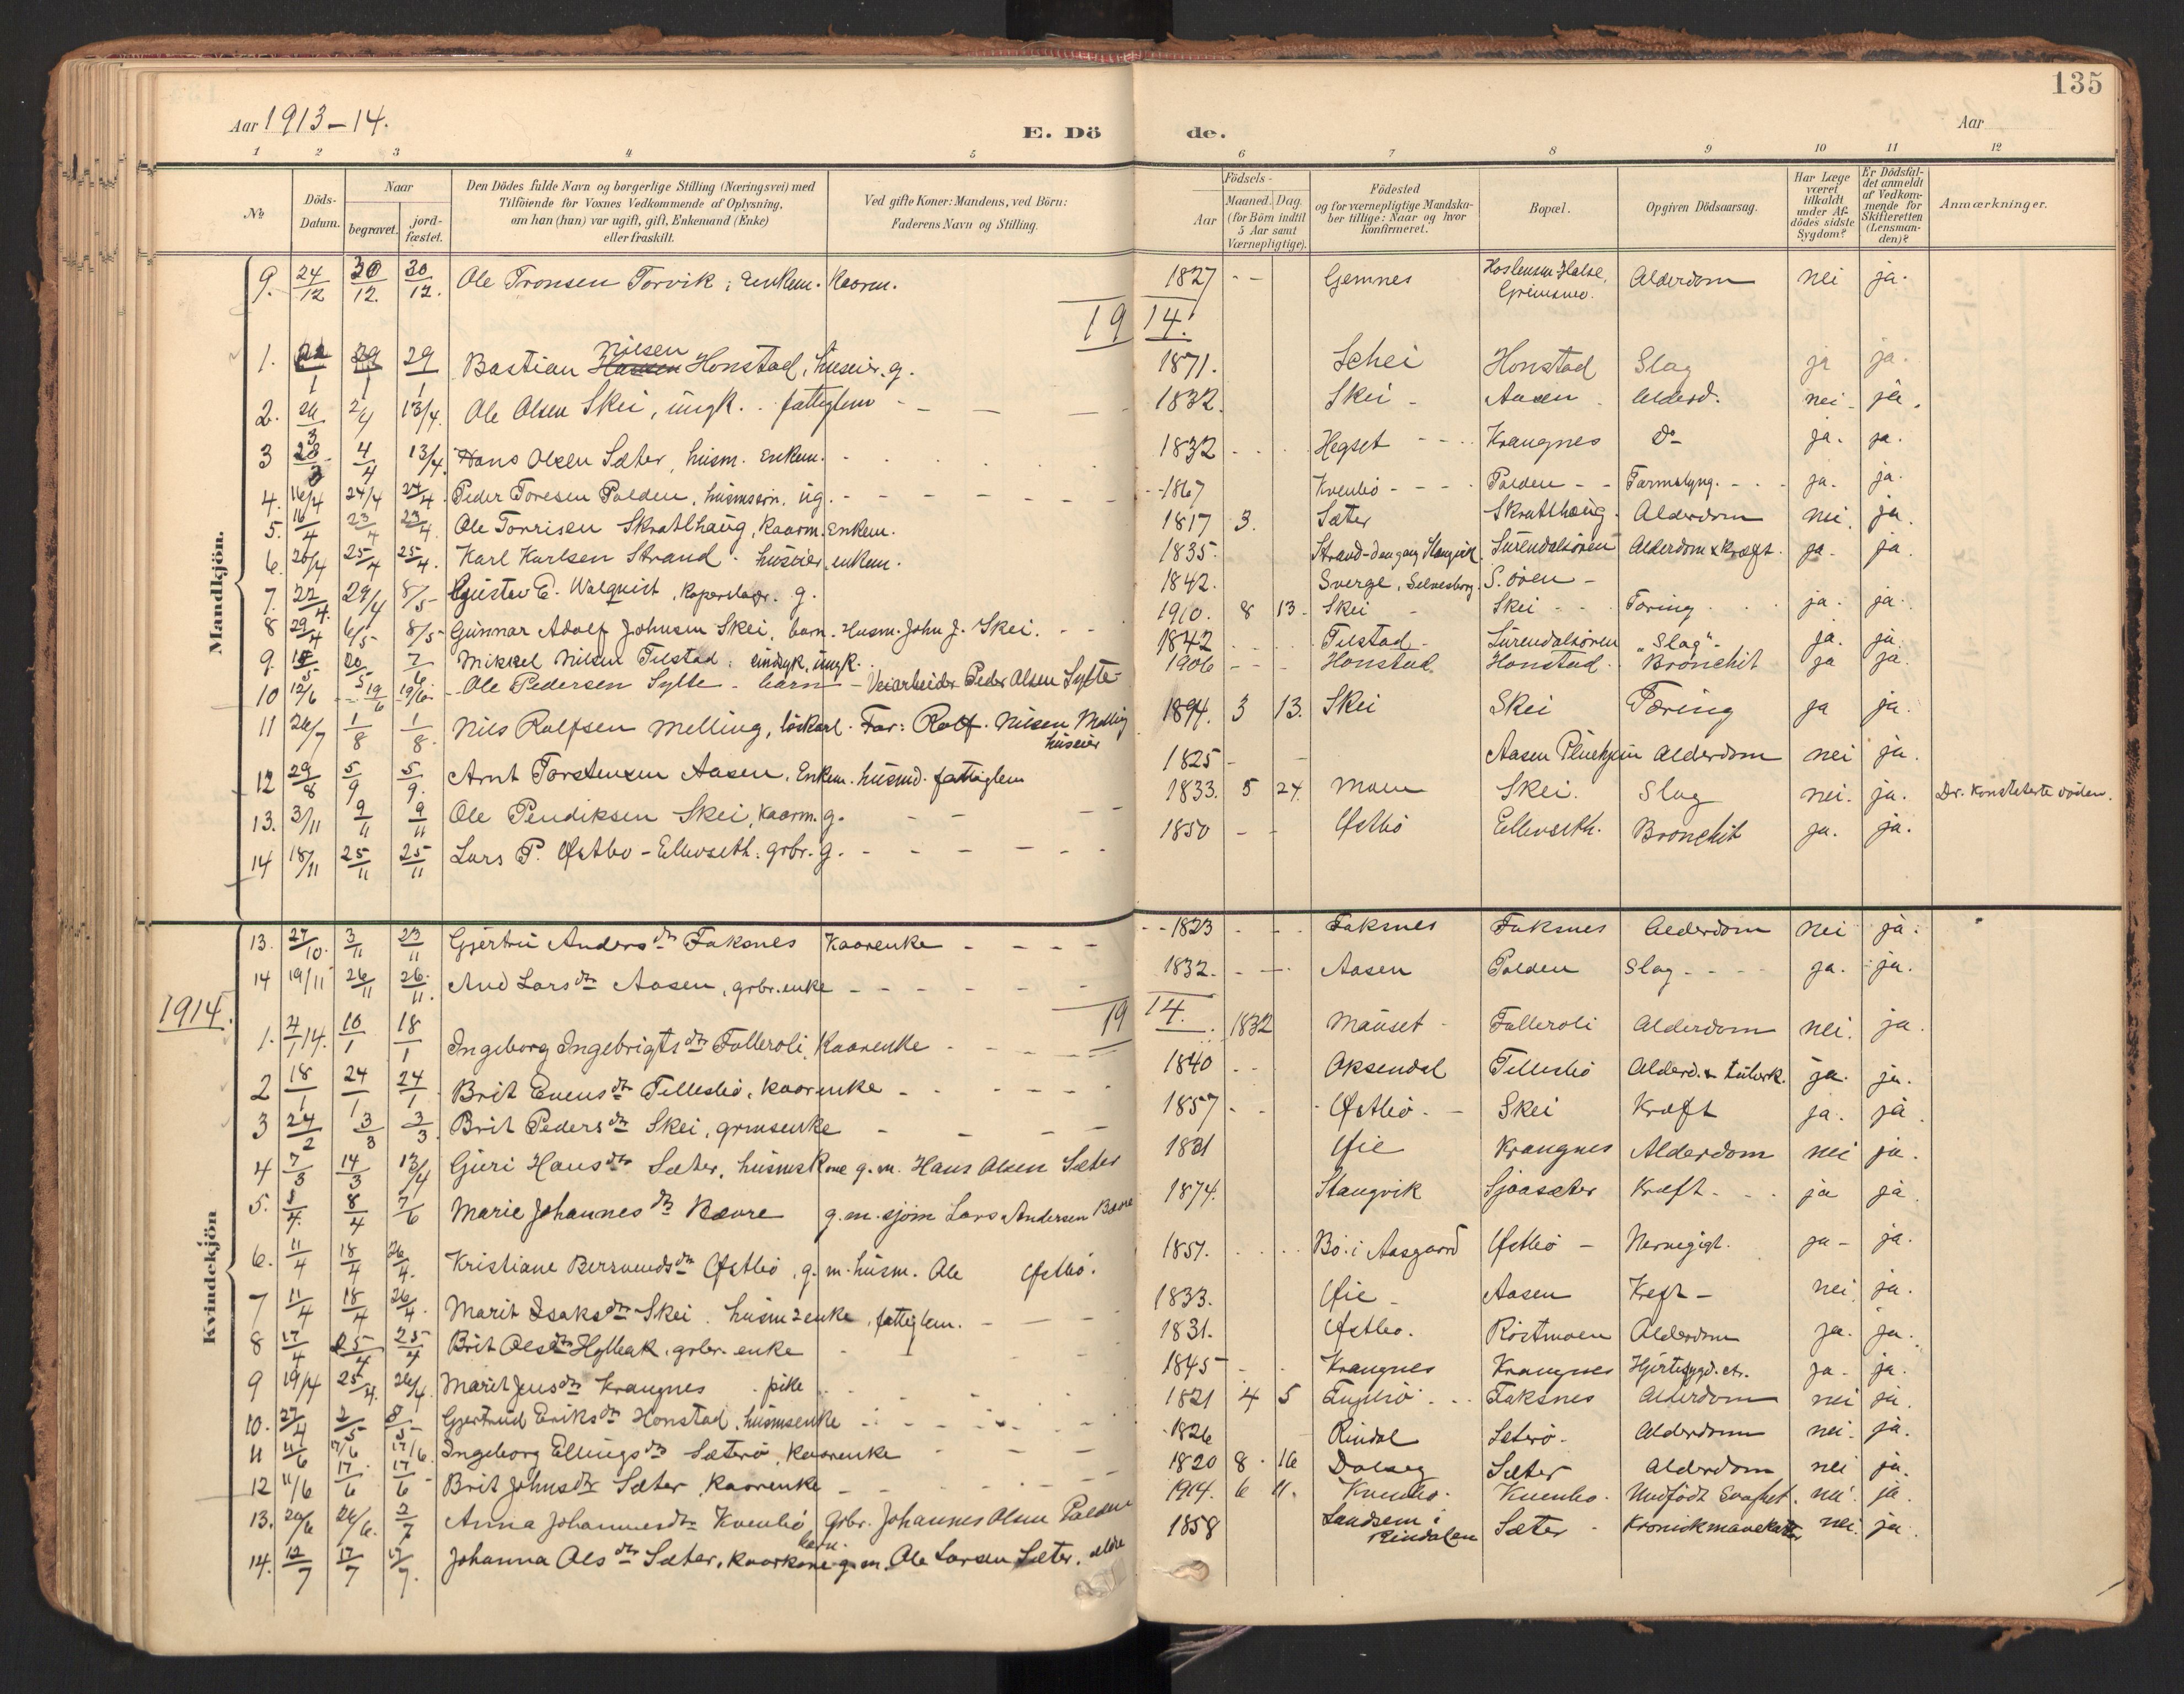 135
Aar 1913-14.
E. Dö de.
Aar
1 2 3 4 5 6 7 8 9 10 11 12
№
Döds-Datum.
Naar
begravet.
jord-fæstet.
Den Dödes fulde Navn og borgerlige Stilling (Næringsvei) med
Tilföiende for Voxnes Vedkommende af Oplysning,
om han (hun) var ugift, gift, Enkemand (Enke)
eller fraskilt.
Ved gifte Koner: Mandens, ved Börn:
Faderens Navn og Stilling.
Födsels-
Aar
Maaned. Dag.
(for Börn indtil
5 Aar samt
Værnepligtige).
Födested
og for værnepligtige Mandska-
ber tillige: Naar og hvor
konfirmeret.
Bopæl.
Opgiven Dödsaarsag.
Har Læge
været
tilkaldt
under Af-
dödes sidste
Sygdom?
Er Dödsfal-
det anmeldt
af Vedkom-
mende for
Skifteretten
(Lensman-
den)?
Anmærkninger.
Mandkjön.
9. 24/12 30/12. 30/12. Ole Tronsen Torvik, Enkem. Kaarm. 1827 - - Gjemnes Halse, Alderdom nei ja.
1914.
1. 29/1 29/1 Bastian Nilsen Honstad, huseier. g. 1871. Schei Honstad Slag ja ja.
2. 2/4 13/4. Ole Olsen Skei, ungk. fattiglem 1832. Skei - Aasen Alderd. nei - ja.
3 28/3 4/4 13/4. Hans Olsen Sæter, husm. Enkem. 1832 Hegset Krangnes Do ja. ja.
4. 16/4 24/4 24/4. Peder Toresen Polden, husmssøn. ug. 1867 Kvenbö Polden ja. ja.
5. 16/4 23/4 23/4. Ole Torrisen Skratlhaug, Kaarm. Enkem. 1817 3. Sæter Skratlhaug. Alderdom nei. ja.
6. 20/4 25/4 25/4. Karl Karlsen Strand. huseier, enkem. 1835. Surendalsören Alderdom & Kræft. ja. ja.
7. 22/4. 29/4 8/5 Gustav E. Walquist, Koperslagr. g. 1842. Sverge, Selvesborg. S. ören -
8 29/4 6/5 8/5 Gunnar Adolf Johnsen Skei, barn. Husm. John J. Skei. 1910. 8 13. Skei Skei Tæring ja. ja.
9. 15/5 20/5 7/6 Mikkel Nilsen Tilstad, sindsyk, ungk. 1842 Tilstad Surendalsören "Slag". ja. ja.
10 12/6 19/6 19/6. Ole Pedersen Sylte - barn - Veiarbeider Peder Olsen Sylte 1906 Honstad Honstad Bronchit ja ja.
11 26/7 1/8 1/8. Nils Rolfsen Melling, löskarl. Far: Rolf Nilsen Melling 1894. 3 13. Skei Skei Tæring ja ja.
huseier
12 29/8 5/9 5/9. Arnt Torstensen Aasen, Enkem. fattiglem 1825 - - Aasen Pleiehjem Alderdom nei ja.
13. 3/11 9/11 9/11 Ole Pendiksen Skei, Kaarm. g. 1833. 5 24. Moen Skei. Slag nei. ja. Dr. konstaterte döden.
14 18/11 25/11 25/11 Lars P. Østbo - Ellevseth. grbr. g. 1850 - - Østbö Ellevseth. Bronchit ja. ja.
Kvindekjön
13. 27/10. 3/11 23/11 Gjertru Andersdtr Faksnes Kaarenke 1823 Faksnes Faksnes Alderdom nei ja.
14 19/11 26/11 26/11. Larsdtr Aasen, grbr. enke 1832. Aasen Polden Slag ja. ja.
1914. 1914.
1. 4/1 14. 10/1 18/1 Ingeborg Ingebrigtsdtr Falleroli, Kaarenke 1832 Mauset Falleroli Alderdom nei. ja.
2 18/1 24/1 24/1 Brit Evensdtr Tellesbö, kaarenke 1840 Øksendal Tellesbö Alderd. & tuberk. ja. ja.
3 24/2 3/3 3/3. Brit Pedersdtr Skei, grmsenke 1857 Østbö Skei Kræft ja. ja.
4 7/3 14/3 13/4 Guri Hansdtr Sæter, husmskone g. m. Hans Olsen Sæter 1831 Øie Krangnes Alderdom nei ja.
5. 8/4 7/6 Marie Johannesdtr Bævre g. m. Lars Andersen Bævre 1874. Stangvik Sjøasæter Kræft ja ja.
6. 11/4 18/4 26/4. Kristiane Østbö, g. m. husm. Ole Østbö. 1857. Bö i Aasgaard Østbö - Nervegigt. ja - ja.
7 11/4 18/4 26/4. Marit Isaksdtr Skei. husmsenke, fattiglem. 1833. Øie - Aasen Kreft - nei ja.
8 17/4 25/4 25/4 Brit Olsdtr Hylbak, grbr. enke 1831. Østbö. Röstmoen Alderdom ja. ja.
9 19/4 25/4. 26/4. Marit Jensdtr Krangnes pike 1845 Krangnes Krangnes Hjertesygd. etc. ja - ja.
10. 27/4 2/5 8/5 Gjertrud Eriksdtr Honstad, husmsenke 1821 4 5 Faksnes Alderdom nei ja.
11 11/6 17/6 17/6. Ingeborg Ellingsdtr Sæterö, Kaarenke 1826 Rindal Sæterö. Alderdom nei. ja.
12 11/6 17/6 17/6 Brit Johnsdtr Sæter, Kaarenke 1820 8 16 Dalseg Sæter Alderdom nei ja.
13. 20/6 26/6. 2/7 Anna Johannesdtr Kvenbö Grbr. Johannes Olsen Polden 1914. 6 11. Kvenbo. Kvenbo. Medfödt Svaghet. nei. ja.
barn.
14. 12/7 17/7 17/7. Johanna Olsdtr Sæter, kaarkone g. m. Ole Larsen Sæter. 1858 Landsem i Rindalen Sæter Kronisk mavekatar nei. ja.